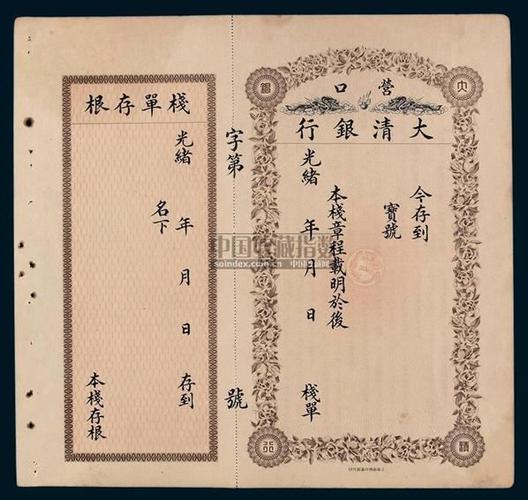 營口
大清銀行
今存到
寶號
本棧章程載明於後
光緒 年 月 日 棧單
字第 號
棧單存根
光緒 年 月 日 存到
名下
本棧存根
大
清
銀
行
中国收藏指数
soindex.com.cn